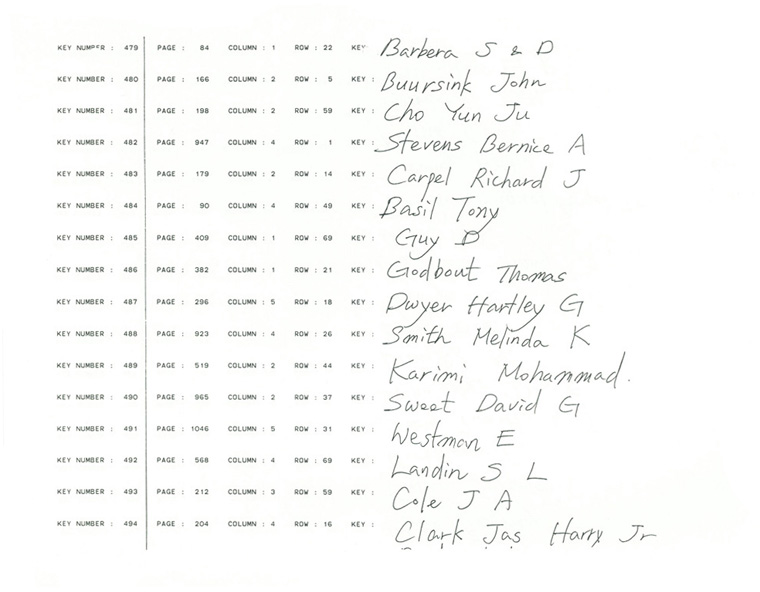 KEY NUMBER : 479 PAGE : 84 COLUMN : 1 ROW : 22 KEY Barbera S & D
KEY NUMBER : 480 PAGE : 166 COLUMN : 2 ROW : 5 KEY : Buursink John
KEY NUMBER : 481 PAGE : 198 COLUMN : 2 ROW : 59 KEY : Cho Yun Ju
KEY NUMBER : 482 PAGE : 947 COLUMN : 4 ROW : 1 KEY : Stevens Bernice A
KEY NUMBER : 483 PAGE : 179 COLUMN : 2 ROW : 14 KEY : Carpel Richard J
KEY NUMBER : 484 PAGE : 90 COLUMN : 4 ROW : 49 KEY : Basil Tony
KEY NUMBER : 485 PAGE : 409 COLUMN : 1 ROW : 69 KEY : Guy D
KEY NUMBER : 486 PAGE : 382 COLUMN : 1 ROW : 21 KEY : Godbout Thomas
KEY NUMBER : 487 PAGE : 296 COLUMN : 5 ROW : 18 KEY : Dwyer Hartley G
KEY NUMBER : 488 PAGE : 923 COLUMN : 4 ROW : 26 KEY : Smith Melinda K
KEY NUMBER : 489 PAGE : 519 COLUMN : 2 ROW : 44 KEY : Karimi Mohammad.
KEY NUMBER : 490 PAGE : 965 COLUMN : 2 ROW : 37 KEY : Sweet David G
KEY NUMBER : 491 PAGE : 1046 COLUMN : 5 ROW : 31 KEY : Westman E
KEY NUMBER : 492 PAGE : 568 COLUMN : 4 ROW : 69 KEY : Landin S L
KEY NUMBER : 493 PAGE : 212 COLUMN : 3 ROW : 59 KEY : Cole J A
KEY NUMBER : 494 PAGE : 204 COLUMN : 4 ROW : 16 KEY : Clark Jas Harry Jr